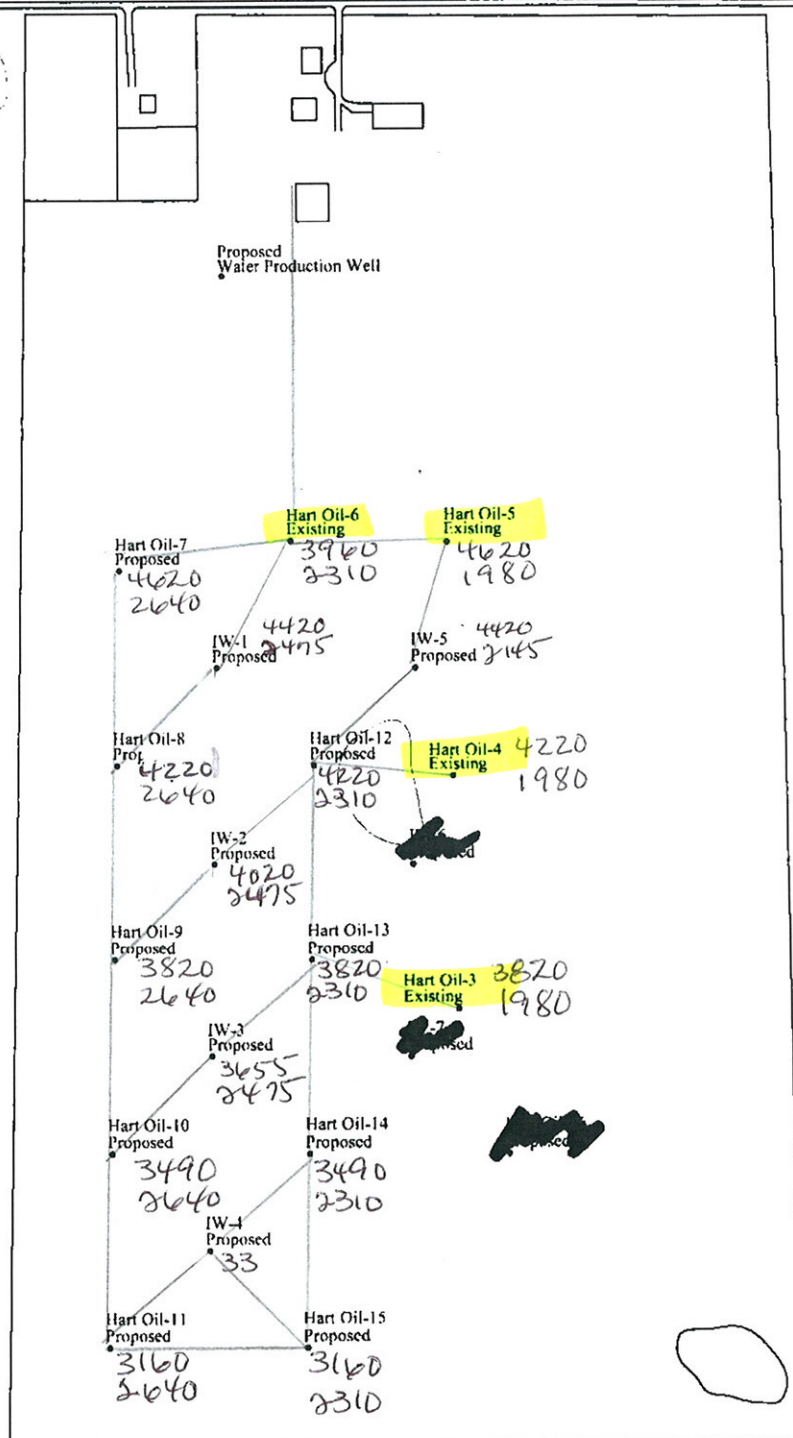 Proposed
Water Production Well
Hart Oil-6
Existing
3960
2310
Hart Oil-5
Existing
4620
1980
Hart Oil-7
Proposed
4620
2640
IW-1
Proposed
4420
2475
IW-5
Proposed
4420
2145
Hart Oil-8
Prop
4220
2640
Hart Oil-12
Proposed
4220
2310
Hart Oil-4
Existing
4220
1980
IW-2
Proposed
4020
2475
Hart Oil-9
Proposed
3820
2640
Hart Oil-13
Proposed
3820
2310
Hart Oil-3
Existing
3820
1980
IW-3
Proposed
3655
2475
Hart Oil-10
Proposed
3490
2640
Hart Oil-14
Proposed
3490
2310
IW-4
Proposed
33
Hart Oil-11
Proposed
3160
2640
Hart Oil-15
Proposed
3160
2310